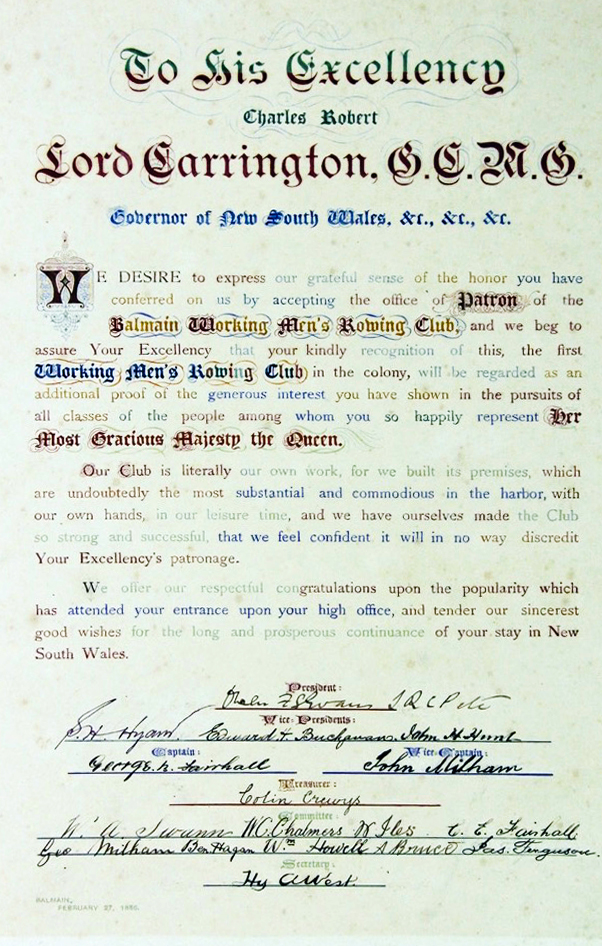 To His Excellency
Charles Robert
Lord Carrington, G.C.M.G.
Governor of New South Wales, &c., &c., &c.
WE DESIRE to express our grateful sense of the honor you have
conferred on us by accepting the office of Patron of the
Balmain Working Men's Rowing Club, and we beg to
assure Your Excellency that your kindly recognition of this, the first
Working Men's Rowing Club in the colony, will be regarded as an
additional proof of the generous interest you have shown in the pursuits of
all classes of the people among whom you so happily represent Her
Most Gracious Majesty the Queen.
Our Club is literally our own work, for we built its premises, which
are undoubtedly the most substantial and commodious in the harbor, with
our own hands, in our leisure time, and we have ourselves made the Club
so strong and successful, that we feel confident it will in no way discredit
Your Excellency's patronage.
We offer our respectful congratulations upon the popularity which
has attended your entrance upon your high office, and tender our sincerest
good wishes for the long and prosperous continuance of your stay in New
South Wales.
President:
Evans
Vice-Presidents:
S. H. Hyam. Edward H. Buchanan. John H. Hunt
Captain: Vice-Captain:
George. R. Fairhall John Milham
Treasurer:
Colin Crewys
Committee:
W. A. Swann W. C. Chalmers W Iles C. E. Fairhall
Geo Milham Ben Hagan Wm Howell A Bruce Jas. Ferguson.
Secretary:
Hy A West.
BALMAIN,
FEBRUARY 27, 1886.